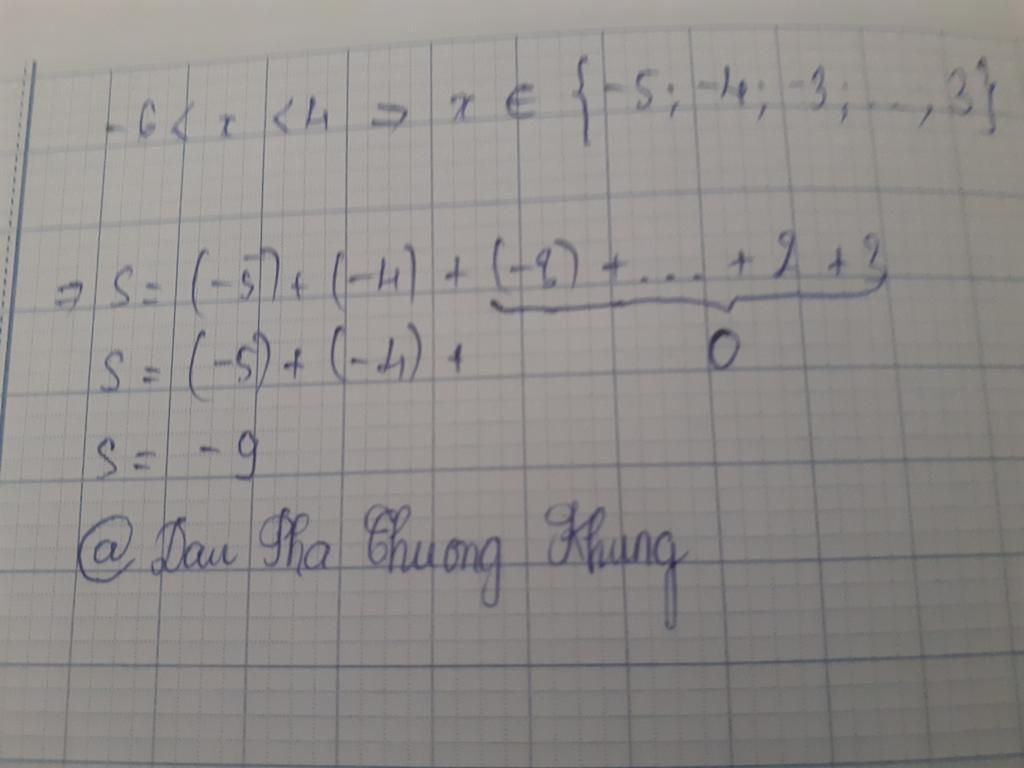 -6 < x < 4 => x ∈ {-5; -4; -3; ..., 3}
=> S = (-5) + (-4) + (-3) + .... + 2 + 3
S = (-5) + (-4) + 0
S = -9
@ Dau Pha Thuong Khung